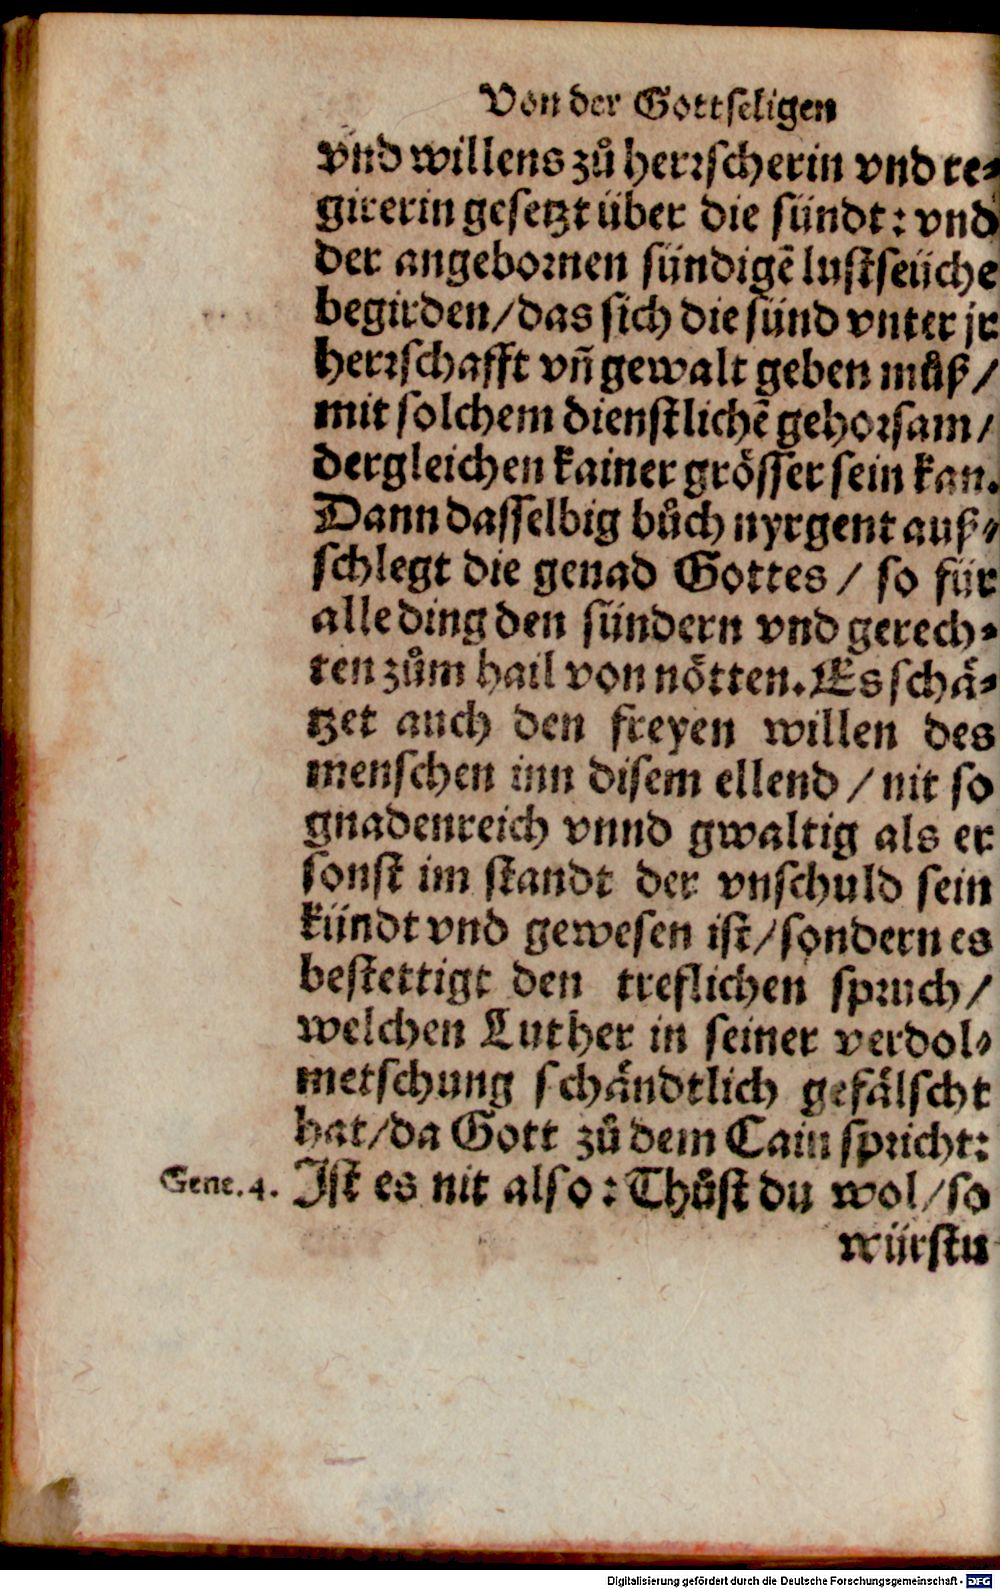 Von der Gottseligen
vnd willens zů herꝛscherin vnd re-
girerin gesetzt über die sündt: vnd
der angeboꝛnen sündigẽ lustseüche
begirden/das sich die sünd vnter jr
herꝛschafft vñ gewalt geben můß/
mit solchem dienstlichẽ gehoꝛsam/
dergleichen kainer grösser sein kan.
Dann dasselbig bůch nyrgent auß-
schlegt die genad Gottes / so für
alle ding den sündern vnd gerech-
ten zům hail von nötten. Es schä-
tzet auch den freyen willen des
menschen inn disem ellend / nit so
gnadenreich vnnd gwaltig als er
sonst im standt der vnschuld sein
kündt vnd gewesen ist/sondern es
bestettigt den treflichen spꝛuch/
welchen Luther in seiner verdol-
metschung schändtlich gefälscht
hat/da Gott zů dem Cain spꝛicht:
Gene. 4. Ist es nit also: Thůst du wol/so
würstu
Digitalisierung gefördert durch die Deutsche Forschungsgemeinschaft - DFG